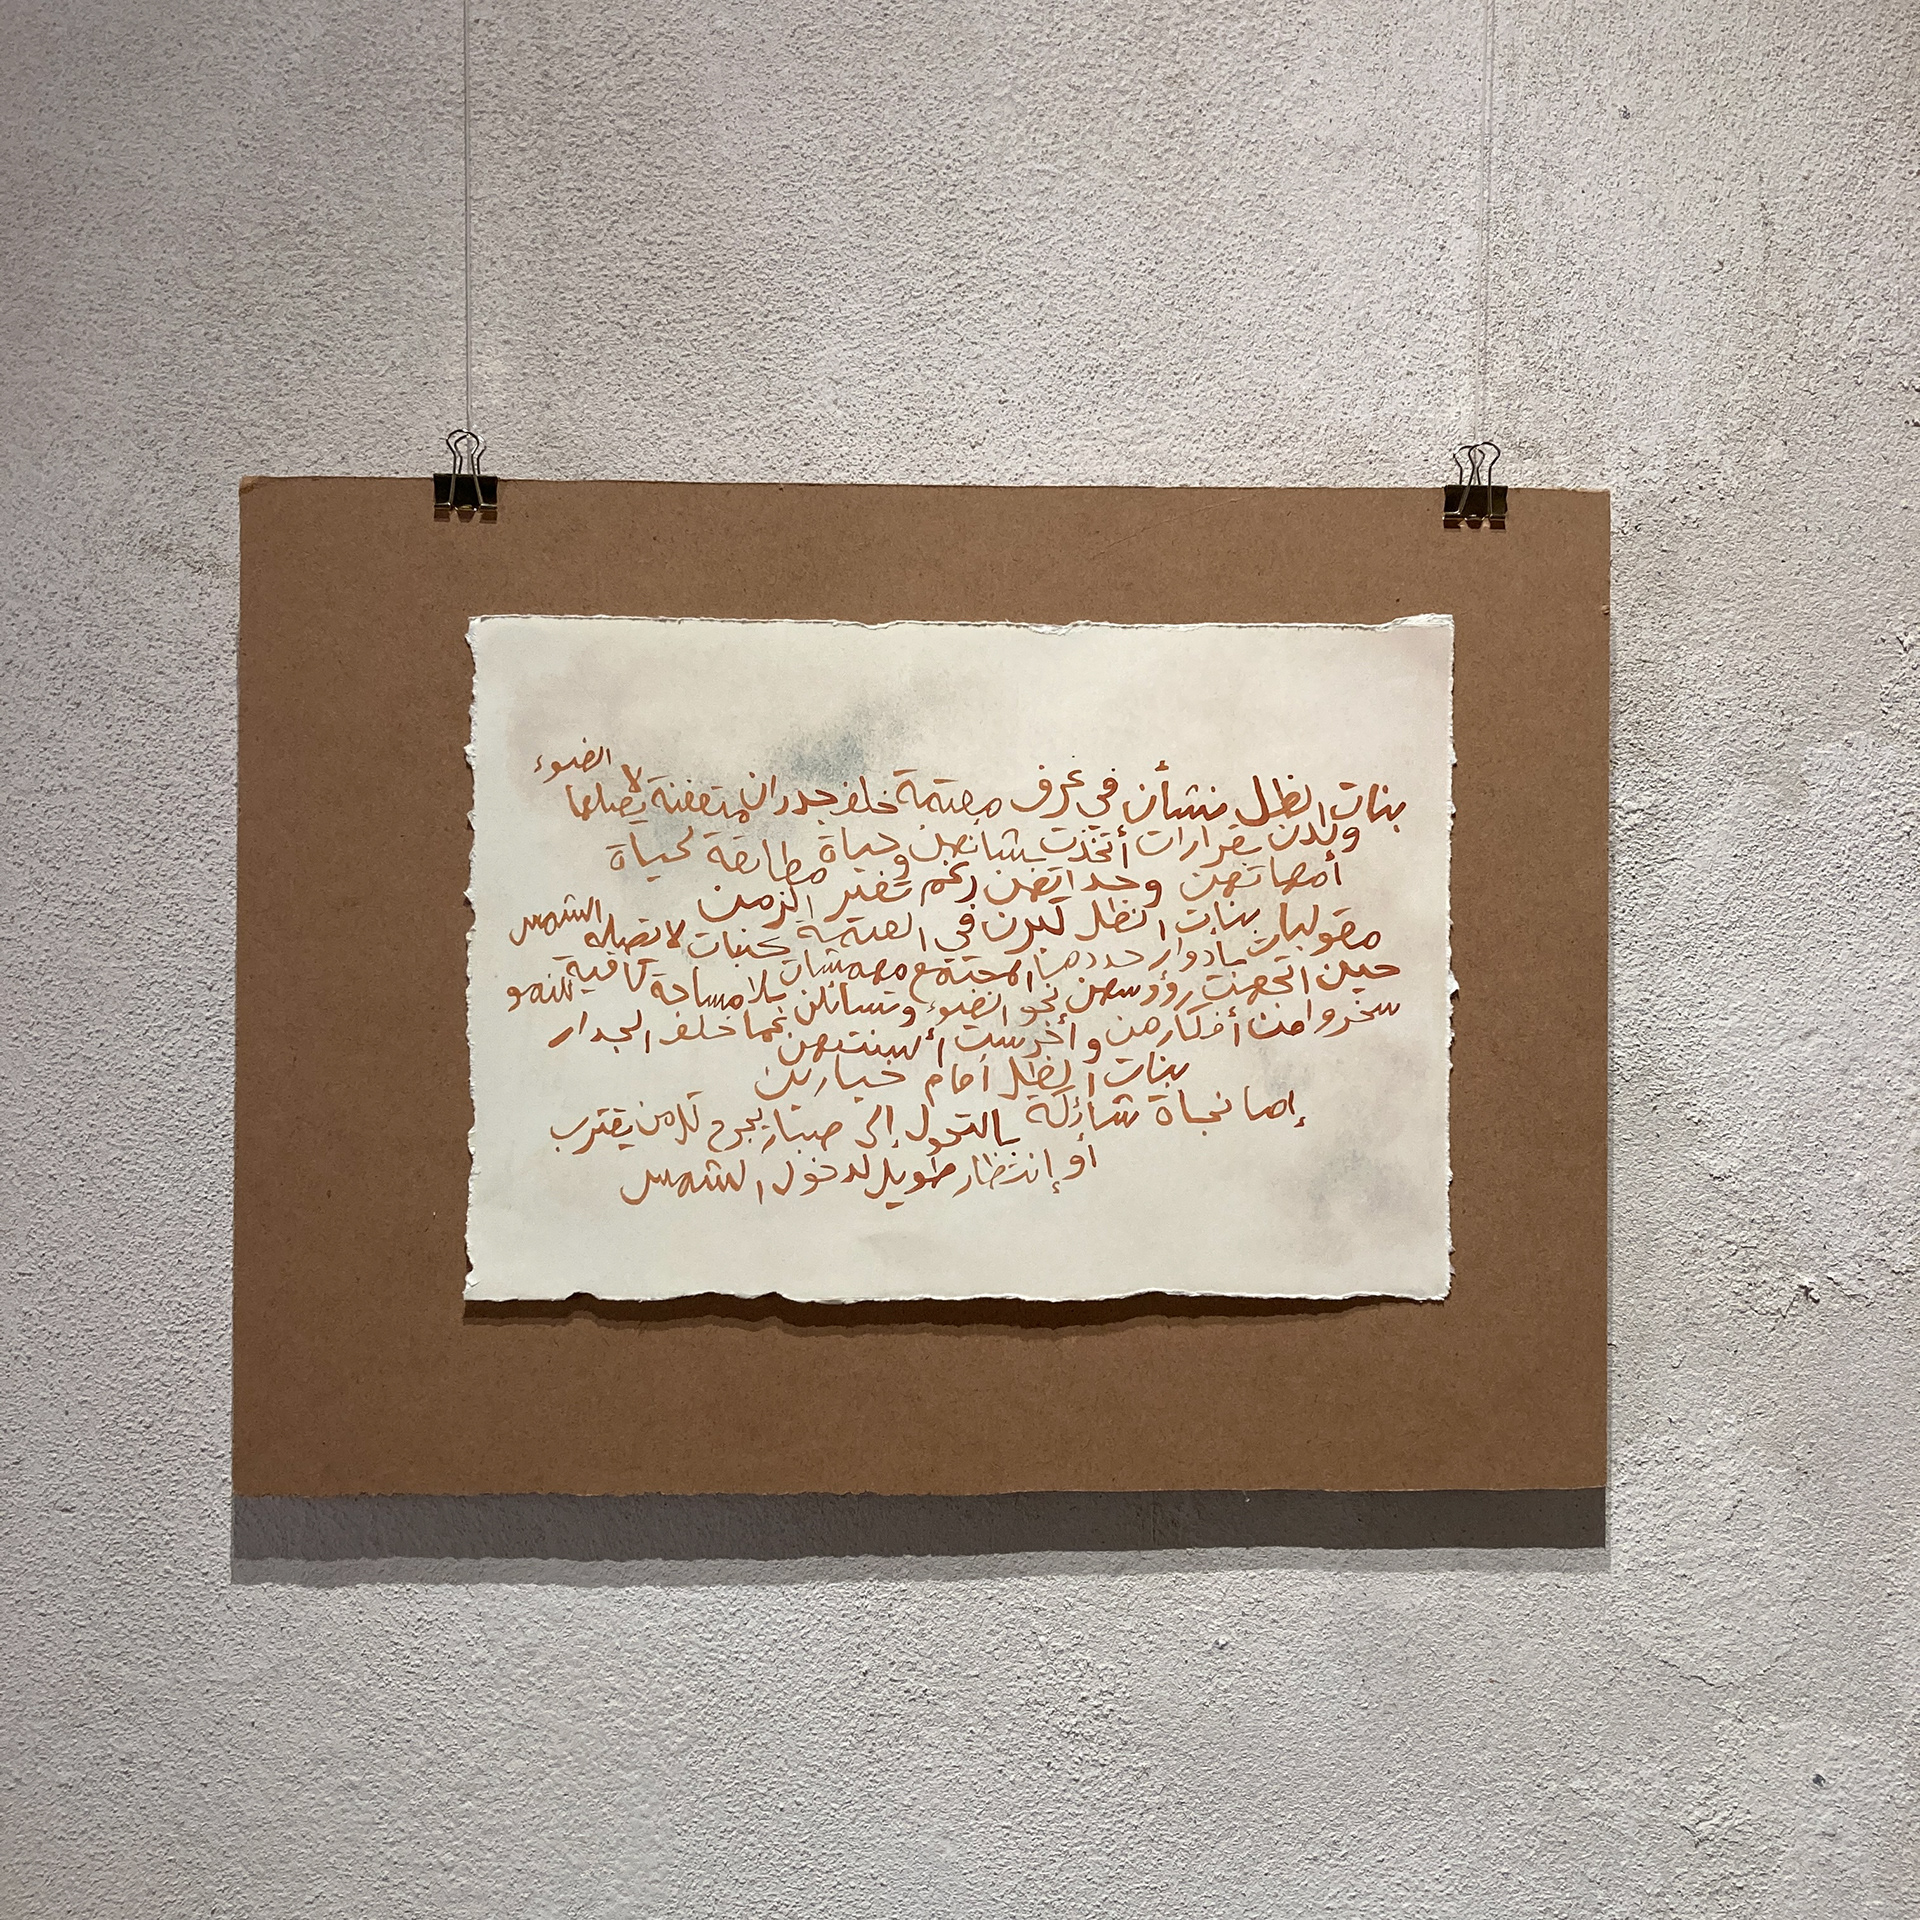 بنات الظل نشأن في غرف معتمة خلف جدران متعفنة لا يصلها الضوء
ولدن بقرارات أتخذت بشأنهن وحياة مطابقة لحياة
أمهاتهن وجداتهن رغم تغير الزمن
مقولبات بنات الظل كبرن في العتمة كنبات لا تصله الشمس
بأدوار حددها المجتمع مهمشات بلا مساحة كافية للنمو
حين اتجهت رؤوسهن نحو الضوء وتسائلن عما خلف الجدار
سخروا من أفكارهن وأخرست ألسنتهن
بنات الظل أمام خيارين
إما نجاة شائكة بالتحول إلى صبار يجرح كل من يقترب
أو إنتظار طويل لدخول الشمس